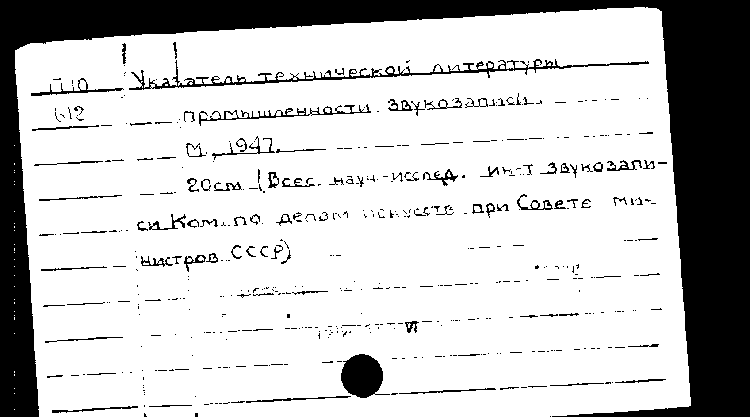 П10 Указатель технической литературы
612 промышленности звукозаписи.
М., 1947.
20см (Всес. науч.-исслед. ин-т звукозапи-
си Ком. по делам искусств при Совете Ми-
нистров СССР)